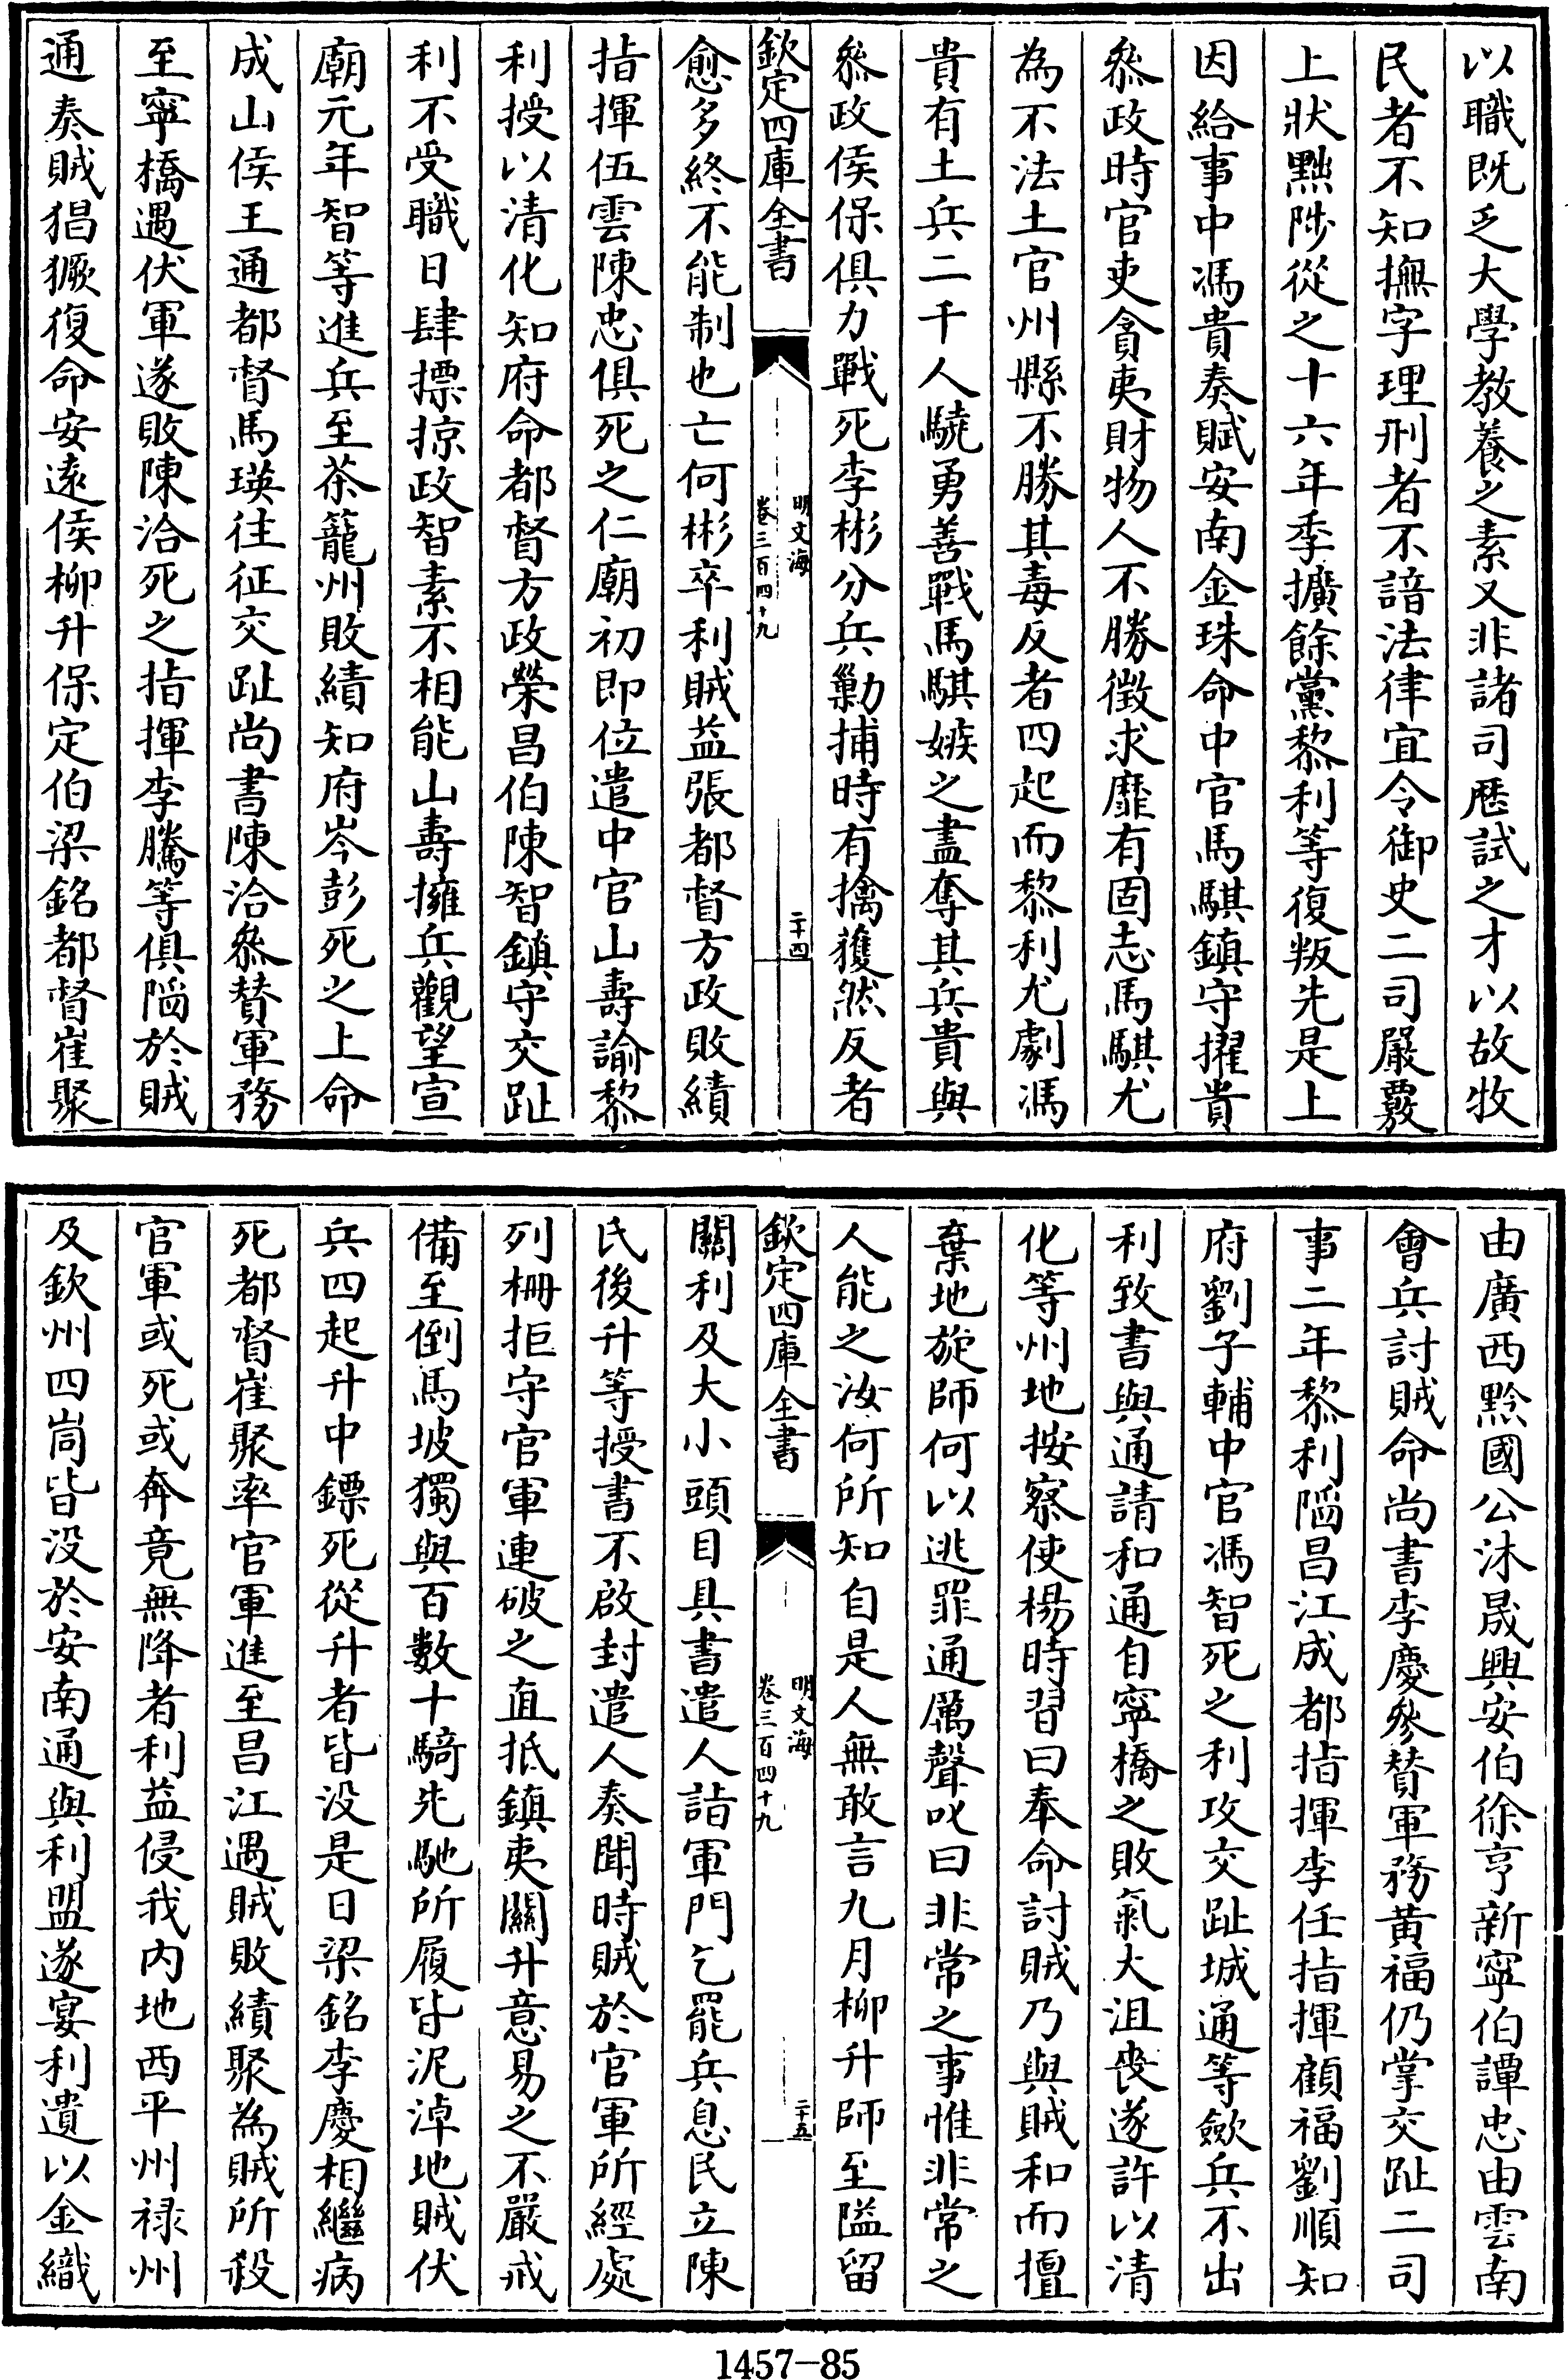 以職既乏大學教養之素又非諸司歴試之才以故牧
民者不知撫字理刑者不諳法律宜令御史二司嚴覈
上狀黜陟從之十六年季擴餘黨黎利等復叛先是上
因給事中馮貴奏賦安南金珠命中官馬騏鎮守擢貴
叅政時官吏貪夷財物人不勝徴求靡有固志馬騏尤
為不法土官州縣不勝其毒反者四起而黎利尤劇馮
貴有土兵二千人驍勇善戰馬騏嫉之盡奪其兵貴與
叅政侯保俱力戰死李彬分兵勦捕時有擒獲然反者
欽定四庫全書
明文海
卷三百四十九
二十四
愈多終不能制也亡何彬卒利賊益張都督方政敗績
指揮伍雲陳忠俱死之仁廟初即位遣中官山壽諭黎
利授以清化知府命都督方政榮昌伯陳智鎮守交趾
利不受職日肆摽掠政智素不相能山壽擁兵觀望宣
廟元年智等進兵至茶籠州敗績知府岑彭死之上命
成山侯王通都督馬瑛往征交趾尚書陳洽叅賛軍務
至寧橋遇伏軍遂敗陳洽死之指揮李騰等俱䧟於賊
通奏賊猖獗復命安逺侯柳升保定伯梁銘都督崔聚
由廣西黔國公沐晟興安伯徐亨新寧伯譚忠由雲南
會兵討賊命尚書李慶參賛軍務黄福仍掌交趾二司
事二年黎利䧟昌江成都指揮李任指揮顧福劉順知
府劉子輔中官馮智死之利攻交趾城通等歛兵不出
利致書與通請和通自寧橋之敗氣大沮喪遂許以清
化等州地按察使楊時習曰奉命討賊乃與賊和而擅
棄地旋師何以逃罪通厲聲叱曰非常之事惟非常之
人能之汝何所知自是人無敢言九月柳升師至隘留
欽定四庫全書
明文海
卷三百四十九
二十五
關利及大小頭目具書遣人詣軍門乞罷兵息民立陳
氏後升等授書不啟封遣人奏聞時賊於官軍所經處
列柵拒守官軍連破之直抵鎮夷關升意易之不嚴戒
備至倒馬坡獨與百數十騎先馳所履皆泥淖地賊伏
兵四起升中鏢死從升者皆没是日梁銘李慶相繼病
死都督崔聚率官軍進至昌江遇賊敗績聚為賊所殺
官軍或死或奔竟無降者利益侵我内地西平州禄州
及欽州四峝皆没於安南通與利盟遂宴利遺以金織
1457-85